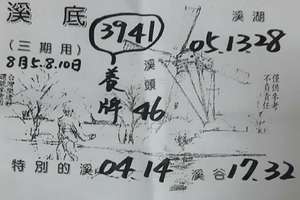 溪底
3941
溪湖
05.13.28
(三期用)
8月5.8.10日
養牌
溪頭
46
僅供參考
不負責任
特別的溪
04.14
溪谷
17.32